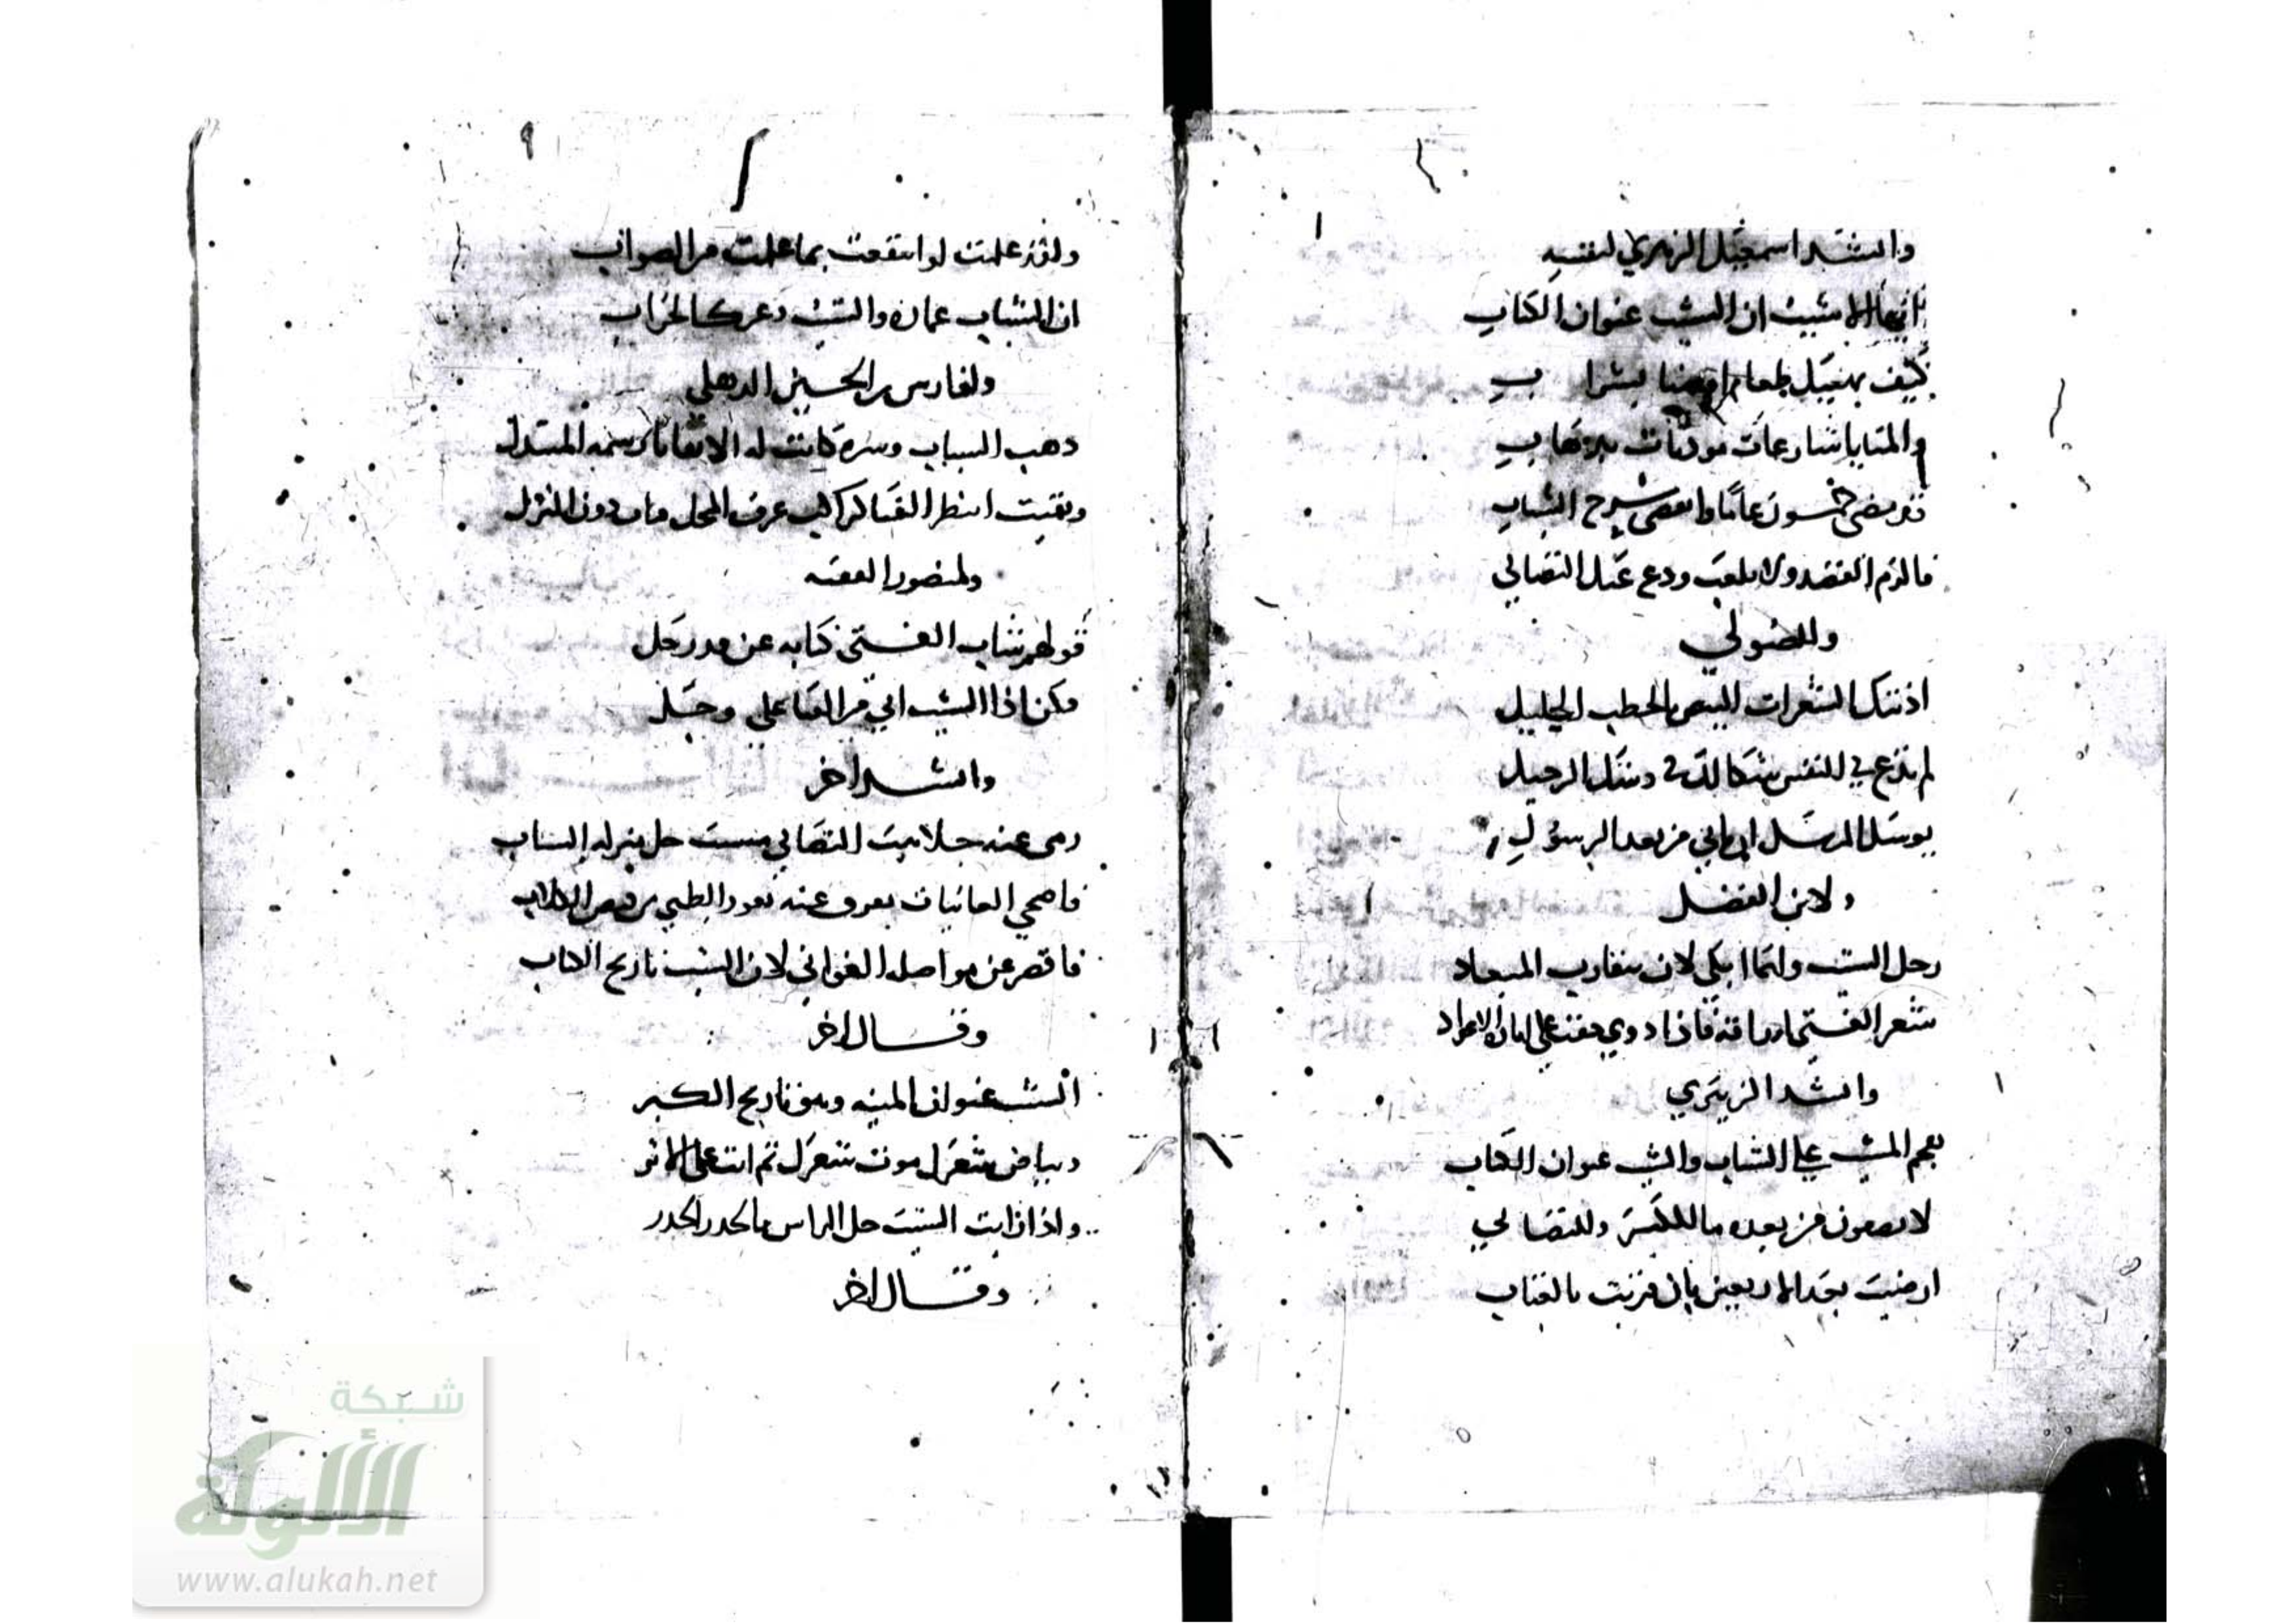 وانشد اسمعيل الزهري لنفسه
ايها الاشيب ان الشيب عنوان الكتاب
كيف يهنيك طعام او بشراب
والمنايا شارعات موذنات بذهاب
قد مضى خمسون عاما وانقضى شرخ الشباب
فالزم القصد ولا تلعب ودع عنك التصابي
وللصولي
اذنتك الشعرات البيض بالخطب الجليل
لم تدع في النفس شكا لك في وشك الرحيل
يوشك المرسل ان ياتي من بعد الرسول
ولابن الفضل
رحل الشيب وانما ابكي لان يتقارب الميعاد
شعر الفتى اوراقه فاذا ذوي جفت على اثاره الاعواد
وانشد الزبيري
نجم المشيب على الشباب والشيب عنوان الكتاب
لا تصبون من بعده ما للكبير وللتصابي
ارضيت بعد الاربعين بان قرنت بالعتاب
٩
ولقد علمت لو انتفعت بما علمت من الصواب
ان الشباب عمارة والشيب دعر كالخراب
ولفارس بن الحسين الذهلي
ذهب الشباب وشره كانت له الا بقايا رسمه المتبدل
وبقيت انتظر الفنا كراكب عرف المحل فبات دون المنزل
ولمنصور الفقيه
قولهم شاب الفتى كنايه عن قد رحل
فكن اذا الشيب اتى من الفنا على وجل
وانشد اخر
رمى عنه جلابيب التصابي مشيب حل منزله الشباب
فاضحى الغانيات
فاقصر عن مواصله الغواني لان الشيب تاريخ الكتاب
وقال اخر
الشيب عنوان المنيه وهو تاريخ الكبر
وبياض شعرك موت شعرك ثم انت على الاثر
واذا رايت الشيب حل الراس فالحذر الحذر
وقال اخر
شبكة
الألوكة
www.alukah.net